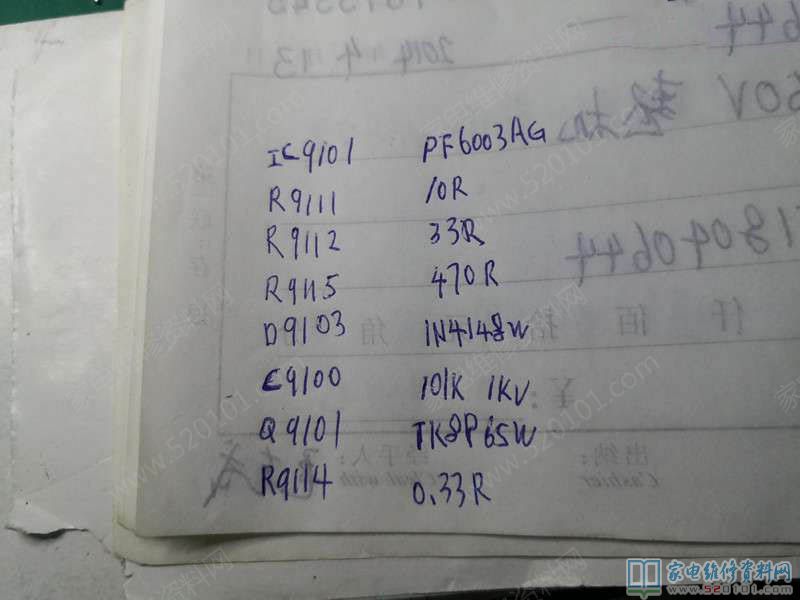 IC9101 PF6003AG
R9111 10R
R9112 33R
R9115 470R
D9103 1N4148W
C9100 101K 1KV
Q9101 TK8P65W
R9114 0.33R
2014 4 13
644
50V 整机
18040644
仟 佰 拾 角
¥:
出纳:
Cashier
经手人:
家电维修资料网
www.520101.com